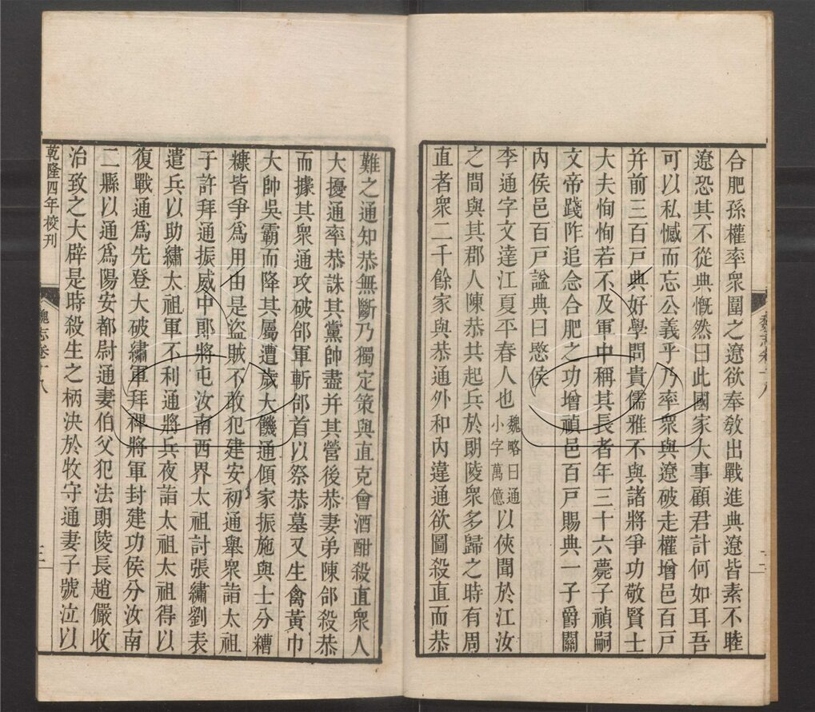 合肥孫權率衆圍之遼欲奉敎出戰進典遼皆素不睦
遼恐其不從典慨然曰此國家大事顧君計何如耳吾
可以私憾而忘公義乎乃率衆與遼破走權增邑百戸
并前三百戸典好學問貴儒雅不與諸將爭功敬賢士
大夫恂恂若不及軍中稱其長者年三十六薨子禎嗣
文帝踐阼追念合肥之功增禎邑百戸賜典一子爵關
內侯邑百戸諡典曰愍侯
李通字文達江夏平春人也魏略曰通小字萬億以俠聞於江汝
之間與其郡人陳恭共起兵於朗陵衆多歸之時有周
直者衆二千餘家與恭通外和內違通欲圖殺直而恭
難之通知恭無斷乃獨定策與直克會酒酣殺直衆人
大擾通率恭誅其黨帥盡并其營後恭妻弟陳郃殺恭
而據其衆通攻破郃軍斬郃首以祭恭墓又生禽黃巾
大帥吳霸而降其屬遭歲大饑通傾家振施與士分糟
糠皆爭爲用由是盜賊不敢犯建安初通舉衆詣太祖
于許拜通振威中郎將屯汝南西界太祖討張繡劉表
遣兵以助繡太祖軍不利通將兵夜詣太祖太祖得以
復戰通爲先登大破繡軍拜裨將軍封建功侯分汝南
二縣以通爲陽安都尉通妻伯父犯法朗陵長趙儼收
治致之大辟是時殺生之柄決於牧守通妻子號泣以
乾隆四年校刊
魏志卷十八
三